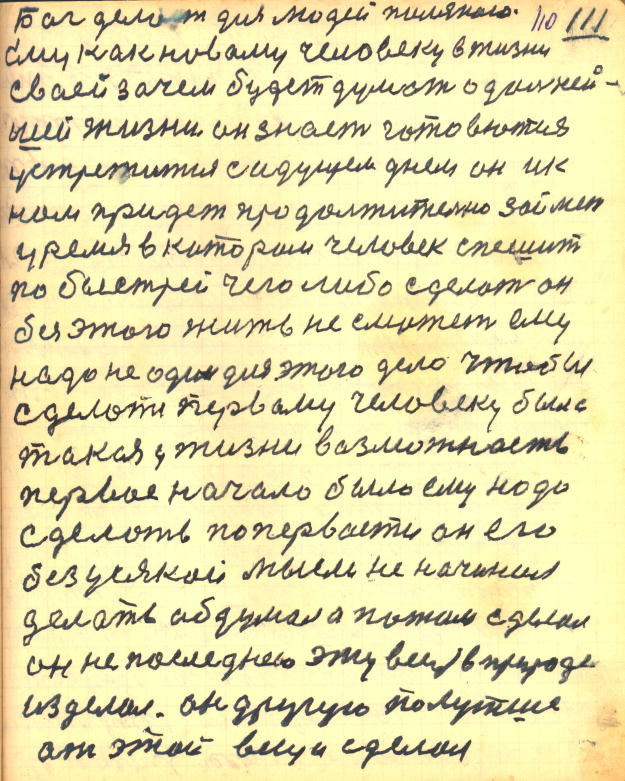 Бог дело т для людей полякого. 110 111
ему как новому человеку в жизни
своей зачем будет думат о далней-
ышей жизни он знает готовютия
устретится с идущем днем он ик
ном придет продолжително займет
уремя в котором человек спешит
по быстрей чего либо сделат он
без этого жить не сможет ему
надо не один для этого дело чтобы
сделоти первому человеку была
такая у жизни возможность
первое начало было ему надо
сделоть попервасти он его
без усякой мысли не начинал
делать обдумал а потом сделал
он не последнею эту вещ в природе
изделал. он другую полутше
от этой вещи сделал